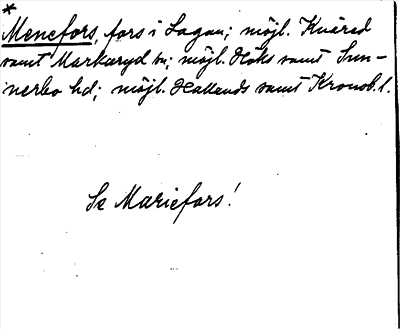 *
Menefors, fors i Lagan; möjl. Knäred
samt Markaryd sn; möjl. Höks samt Sun-
nerbo hd; möjl. Hallands samt Kronob. l.
Se Mariefors!